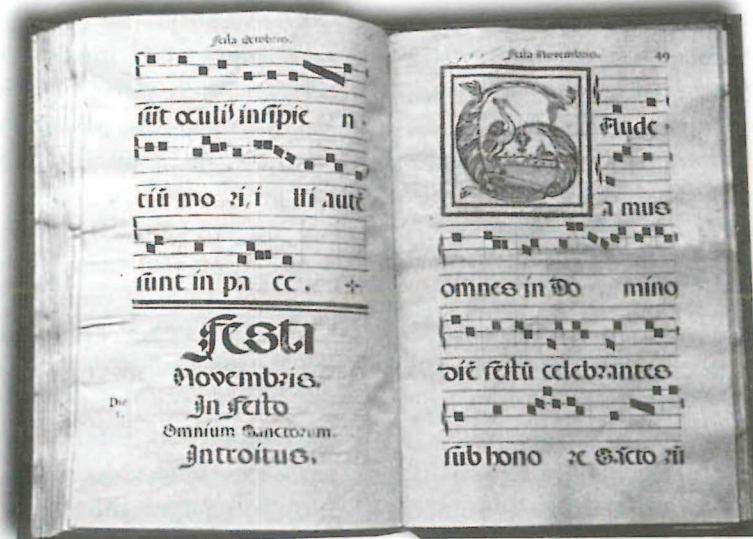 Festa Octobris.
sūt oculis insipie n-
tiū mo ri, i lli autē
sunt in pa ce. ✢
Festa
Novembris.
Die
1.
In Festo
Omnium Sanctorum.
Introitus.
Festa Novembris. 49
Aude-
a mus
omnes in Do mino
diē festū celebrantes
sub hono re Sācto rū